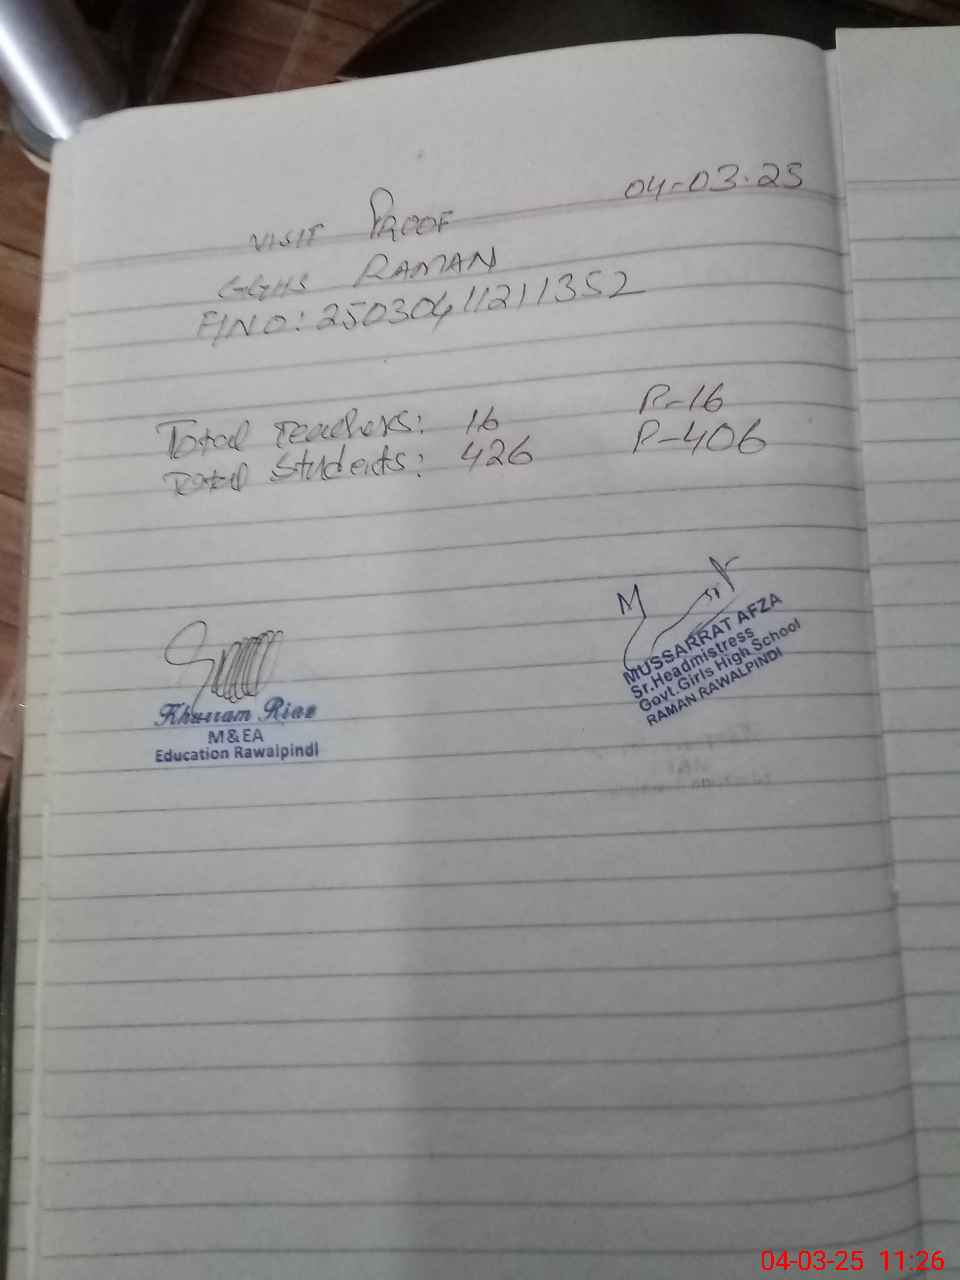 04-03-25
VISIT PROOF
GGHS RAMAN
F/NO: 25030411211352
Total Teachers: 16 P-16
Total Students: 426 P-406
Khurram Riaz
M&EA
Education Rawalpindi
MUSSARRAT AFZA
Sr.Headmistress
Govt.Girls High School
RAMAN RAWALPINDI
04-03-25 11:26